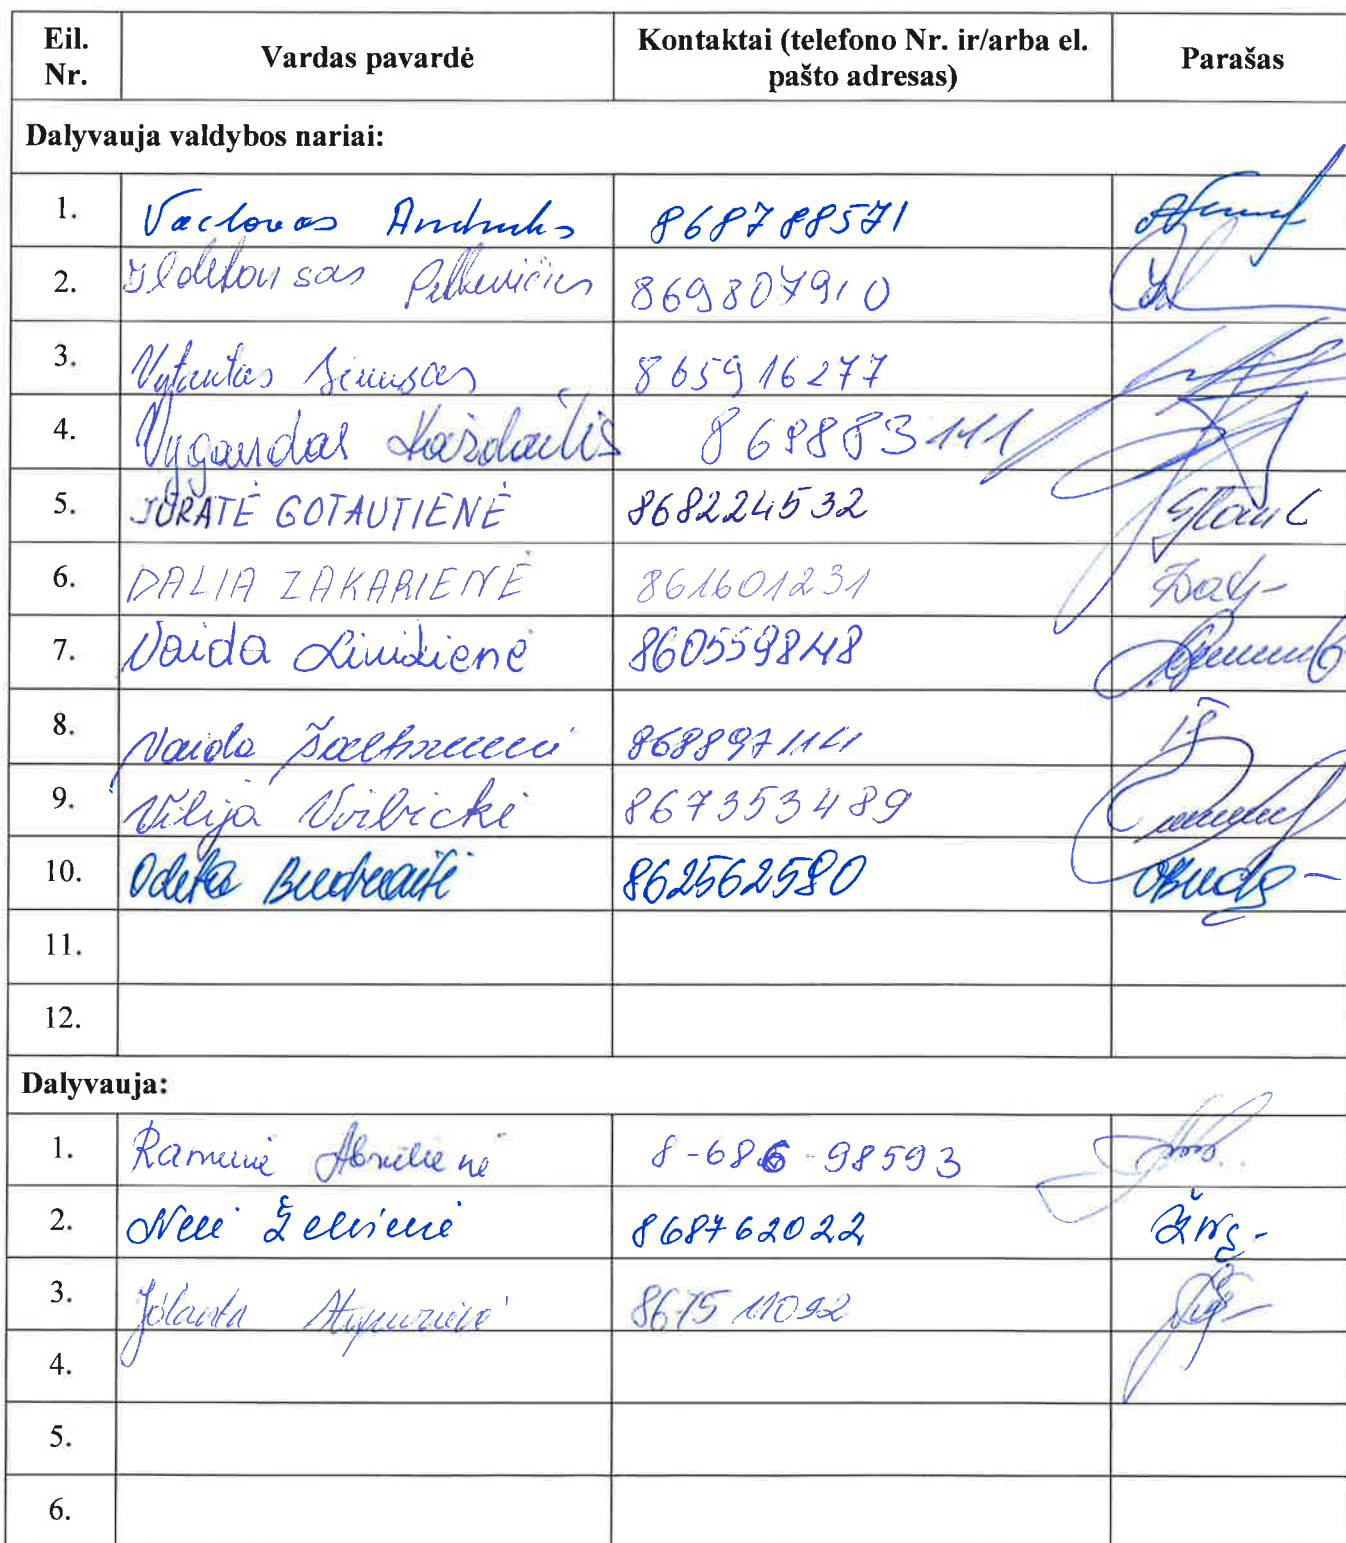 Eil. Nr. Vardas pavardė Kontaktai (telefono Nr. ir/arba el. pašto adresas) Parašas
Dalyvauja valdybos nariai:
1. Vaclovas 868788571
2. Ildefonsas Petkevičius 869807910
3. Vytautas 865916277
4. Vygandas Kazdailis 868883111
5. JŪRATĖ GOTAUTIENĖ 868224532
6. DALIA ZAKARIENĖ 861601231
7. Vaida 860559848
8. Vaida
9. Vilija Virbickė 867353489
10. Odeta Budvaitė 862562580
11.
12.
Dalyvauja:
1. Ramunė 8-686-98593
2. 868762022
3. Jolanta 867511092
4.
5.
6.